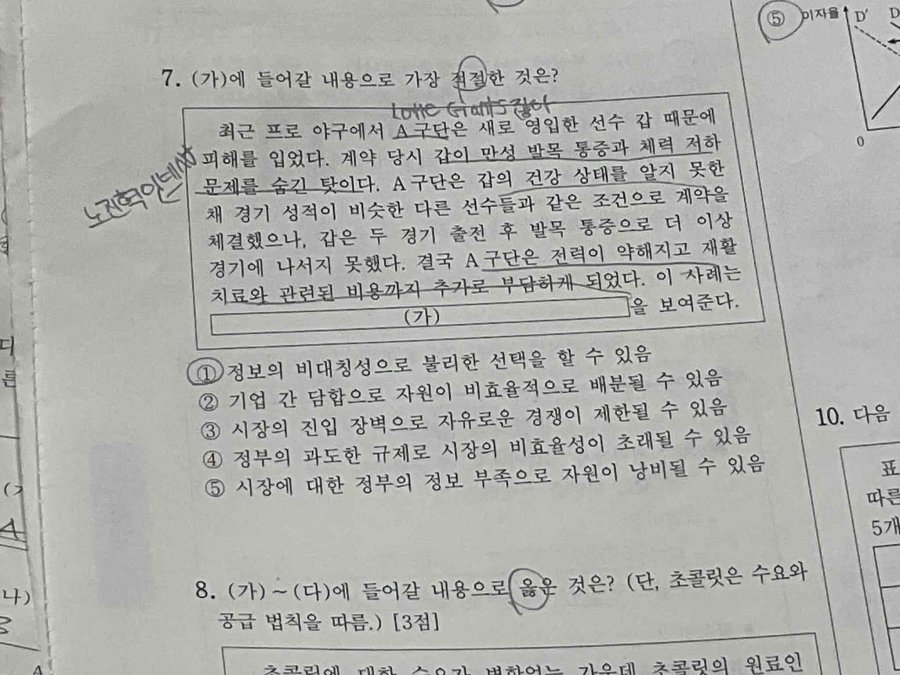 ⑤ 이자율 D′ D
0
7. (가)에 들어갈 내용으로 가장 적절한 것은?
Lotte Giants
최근 프로 야구에서 A 구단은 새로 영입한 선수 갑 때문에
피해를 입었다. 계약 당시 갑이 만성 발목 통증과 체력 저하
문제를 숨긴 탓이다. A 구단은 갑의 건강 상태를 알지 못한
채 경기 성적이 비슷한 다른 선수들과 같은 조건으로 계약을
체결했으나, 갑은 두 경기 출전 후 발목 통증으로 더 이상
경기에 나서지 못했다. 결국 A 구단은 전력이 약해지고 재활
치료와 관련된 비용까지 추가로 부담하게 되었다. 이 사례는
(가) 을 보여준다.
노진혁인데
① 정보의 비대칭성으로 불리한 선택을 할 수 있음
② 기업 간 담합으로 자원이 비효율적으로 배분될 수 있음
③ 시장의 진입 장벽으로 자유로운 경쟁이 제한될 수 있음
④ 정부의 과도한 규제로 시장의 비효율성이 초래될 수 있음
⑤ 시장에 대한 정부의 정보 부족으로 자원이 낭비될 수 있음
8. (가)~(다)에 들어갈 내용으로 옳은 것은? (단, 초콜릿은 수요와
공급 법칙을 따름.) [3점]
초콜릿에 대한 수요가 변함없는 가운데 초콜릿의 원료인
10. 다음
표
따른
5개
디
른
A
나)
3
A